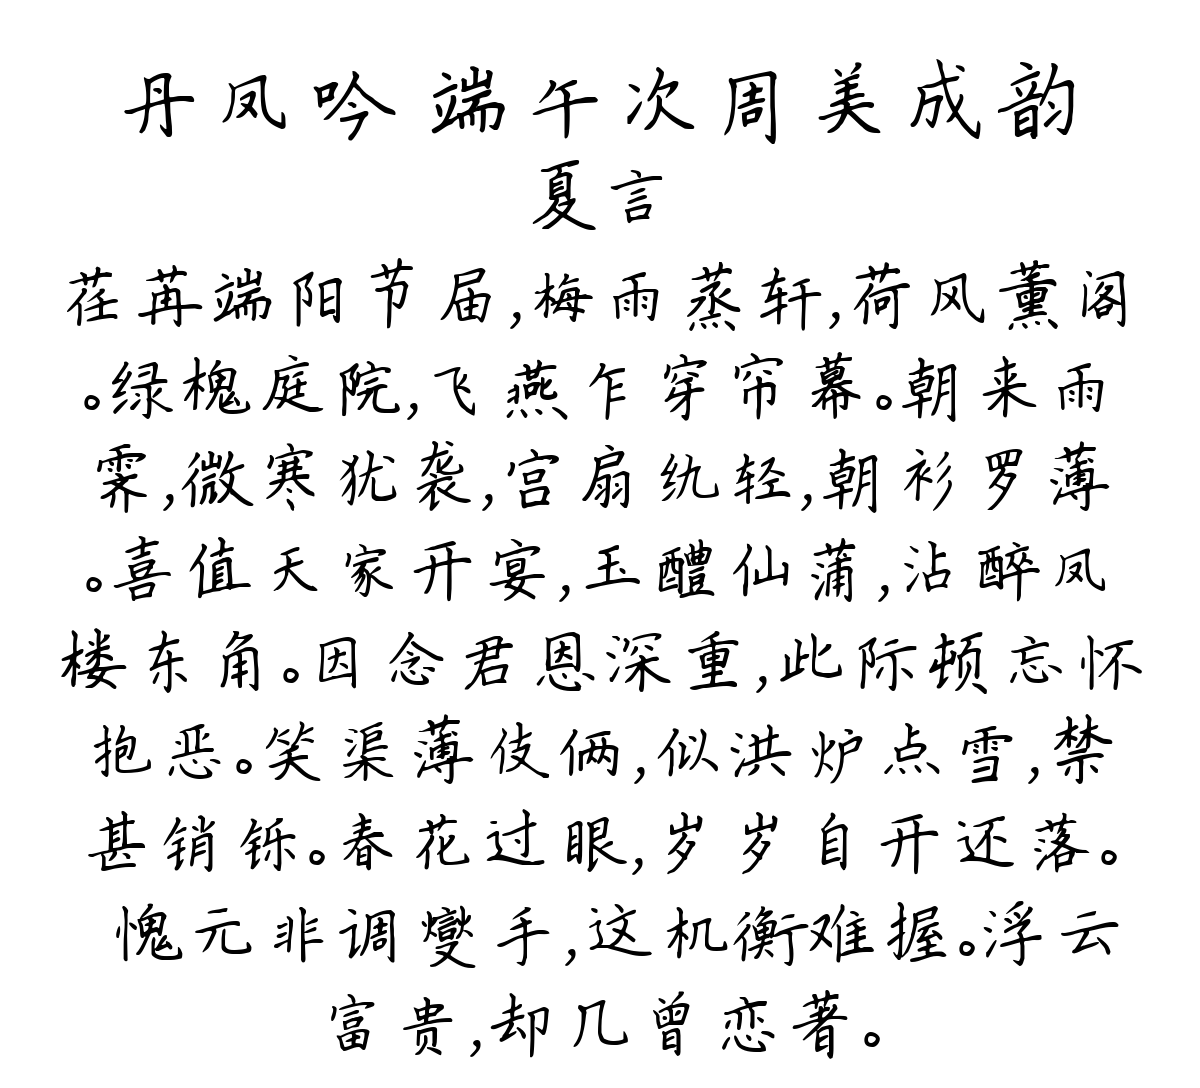 丹凤吟 端午次周美成韵
夏言
荏苒端阳节届,梅雨蒸轩,荷风薰阁
。绿槐庭院,飞燕乍穿帘幕。朝来雨
霁,微寒犹袭,宫扇纨轻,朝衫罗薄
。喜值天家开宴,玉醴仙蒲,沾醉凤
楼东角。因念君恩深重,此际顿忘怀
抱恶。笑渠薄伎俩,似洪炉点雪,禁
甚销铄。春花过眼,岁岁自开还落。
愧元非调燮手,这机衡难握。浮云
富贵,却几曾恋著。